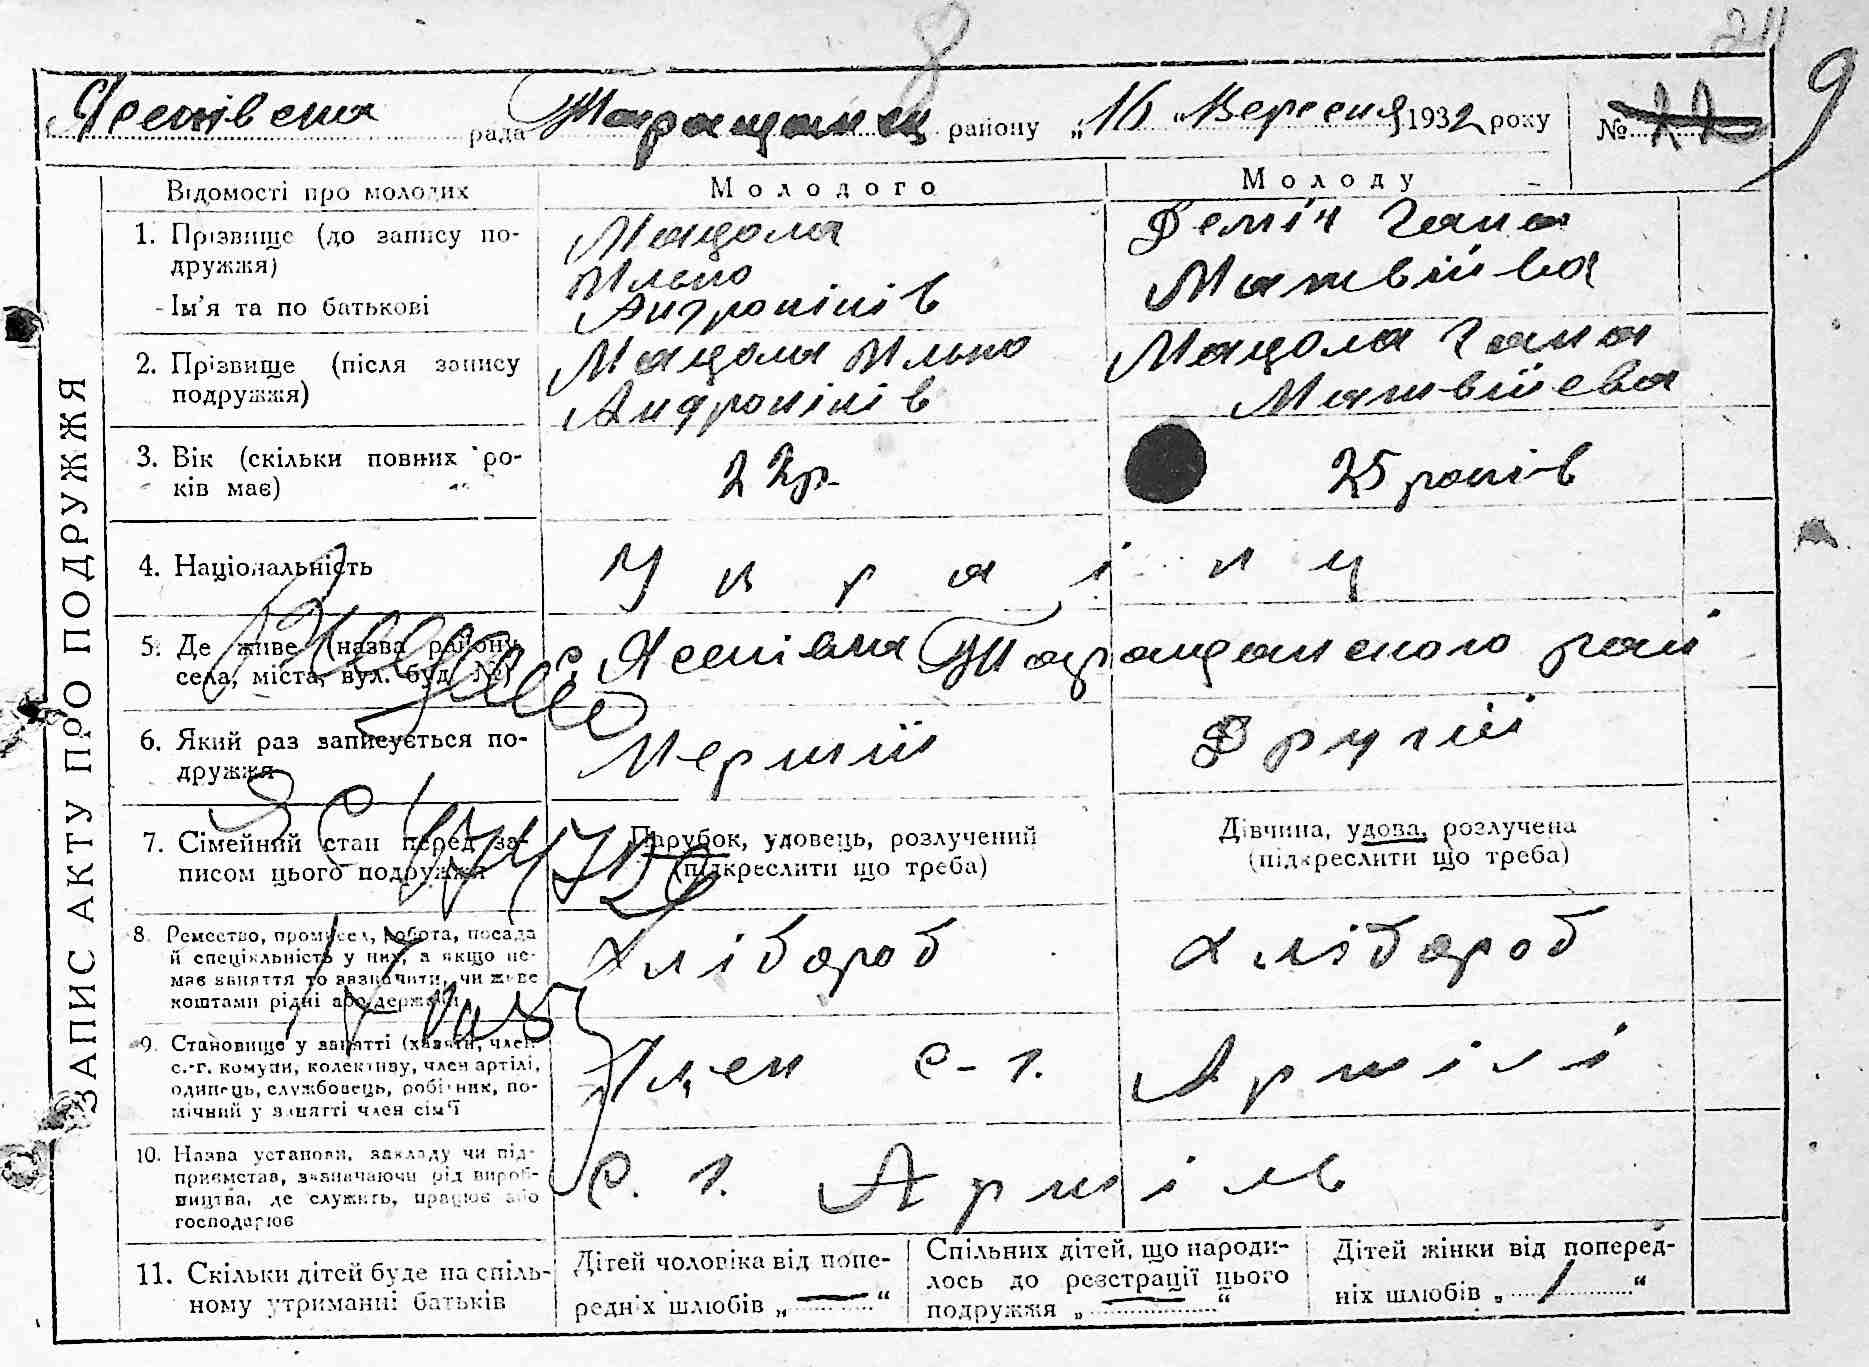 24
8
9
Ясенівська рада Таращанськ району „16 „ Вересня 1932 року № 22
ЗАПИС АКТУ ПРО ПОДРУЖЖЯ
Відомості про молодих
Молодого
Молоду
1. Прізвище (до запису по-
дружжя)
Ім'я та по батькові
Мацола
Илько
Андронików
Деміч Гана
Матвіїва
2. Прізвище (після запису
подружжя)
Мацола Илько
Андроників
Мацола Гана
Матвїєва
3. Вік (скільки повних ро-
ків має)
22 р.
25 років
4. Національність
Українц
5. Де живе (назва району,
села, міста, вул. буд. №)
с. Ясенівка Таращанского рай
6. Який раз записується по-
дружжя
Перший
Другий
7. Сімейний стан перед за-
писом цього подружжя
Парубок, удовець, розлучений
(підкреслити що треба)
Дівчина, удова, розлучена
(підкреслити що треба)
8. Ремество, промисел, робота, посада
й спеціяльність у них, а якщо не-
має заняття то зазначити, чи живе
коштами рідні або держави
Хлібороб
Хлібороб
9. Становище у занятті (хазяїн, член
с.-г. комуни, колективу, член артілі,
одинець, службовець, робітник, по-
мічний у занятті член сім'ї
Член с-г. Артілі
10. Назва установи, закладу чи під-
приємства, зазначаючи рід вироб-
ництва, де служить, працює або
господарює
С. г. Артіль
11. Скільки дітей буде на спіль-
ному утриманні батьків
Дітей чоловіка від попе-
редніх шлюбів „ — “
Спільних дітей, що народи-
лось до реєстрації цього
подружжя „ — “
Дітей жінки від поперед-
ніх шлюбів „ 1 “